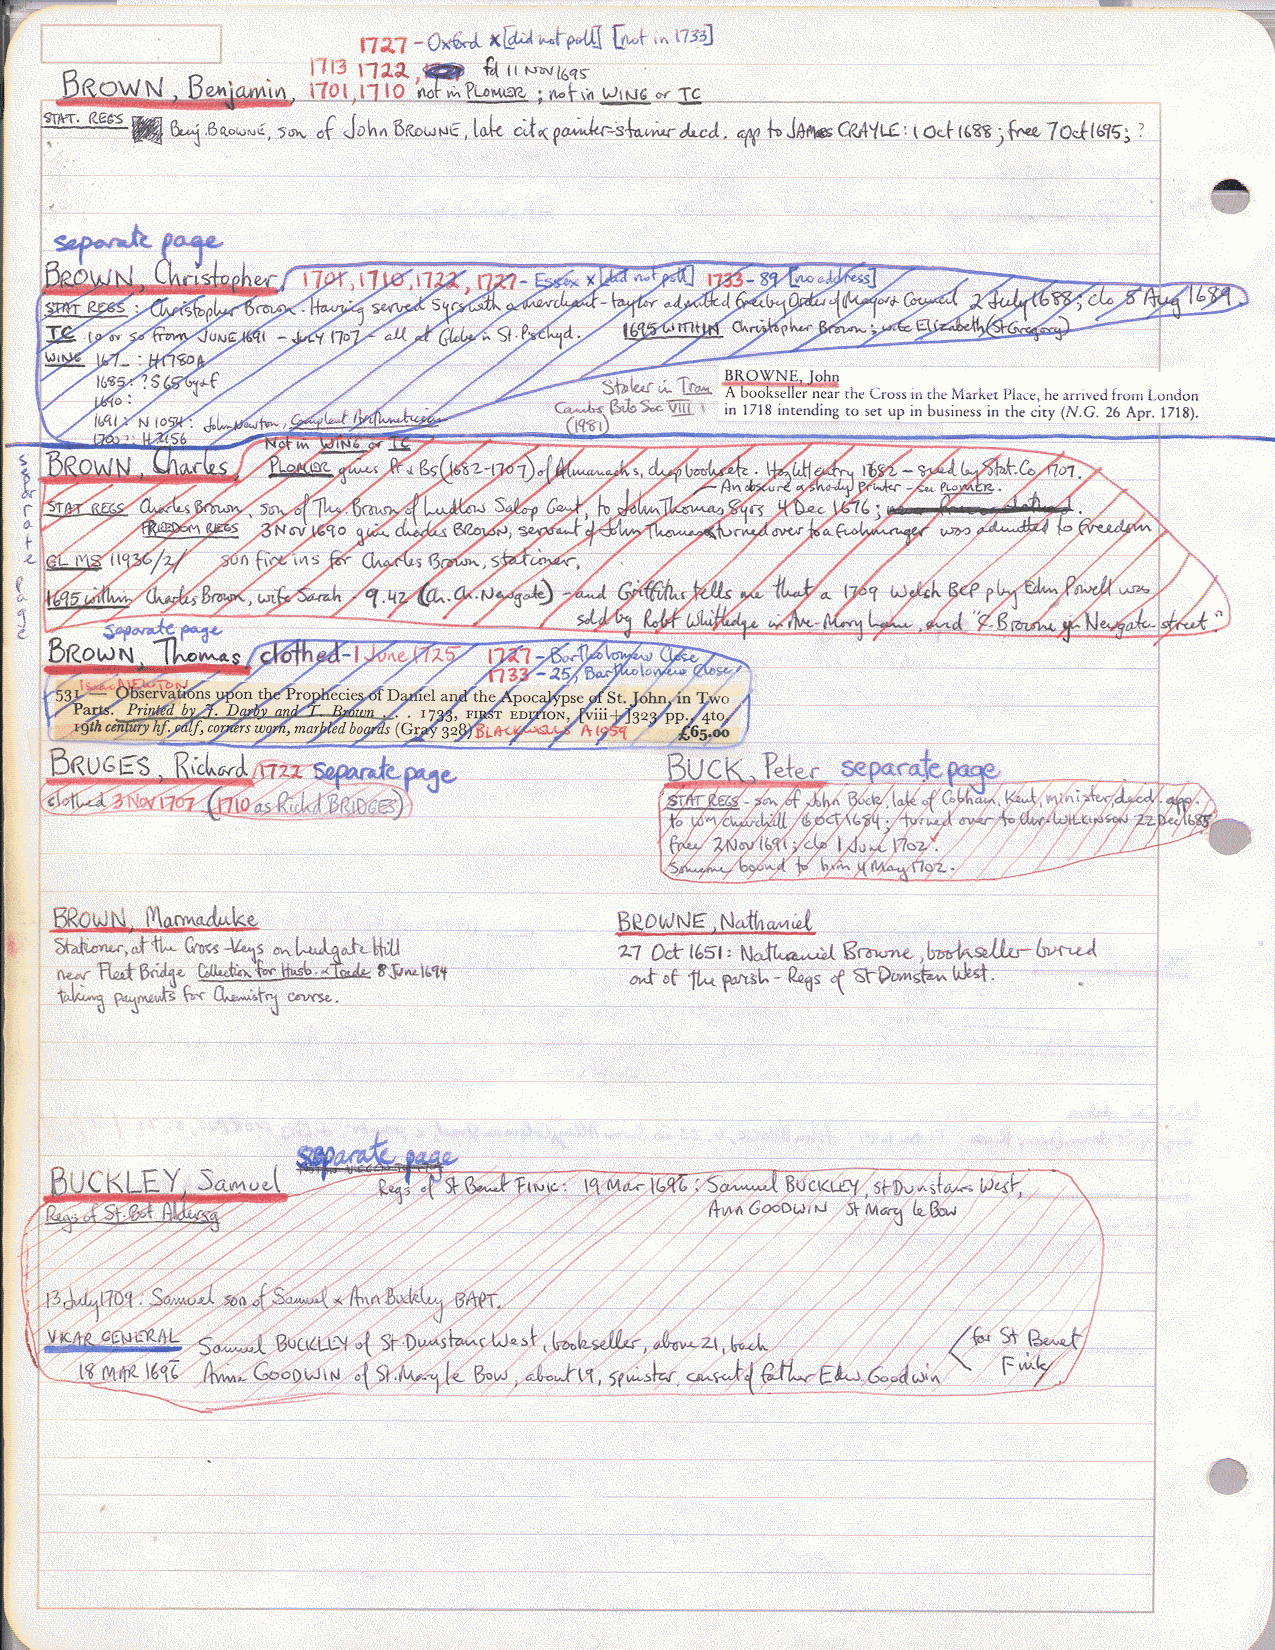 1727 - Oxford x [did not poll] [not in 1733]
1713 1722, fd 11 NOV 1695
BROWN, Benjamin, 1701, 1710 not in PLOMER ; not in WING or TC
STAT. REGS Benj. BROWNE, son of John BROWNE, late cit & painter-stainer decd. app to JAMES CRAYLE: 1 Oct 1688; free 7 Oct 1695; ?
separate page
BROWN, Christopher, 1701, 1710, 1722, 1727 - Essex x [did not poll] 1733 - 89 [no address]
STAT REGS : Christopher Brown. Having served 5yrs with a merchant-taylor admitted free by Order of Mayor & Council 2 July 1688; clo 5 Aug 1689.
TC 10 or so from JUNE 1691 - JULY 1707 - all at Globe in St. Pschyd. 1695 WITHIN Christopher Brown; wife Elizabeth (St Gregory)
WING 167_ : H1780A
1685: ? S65 by & f
1690:
1691: N 1054: John Newton, Compleat Arithmetician
1700?: H2456
Stoker in Tran
Cambs Bib Soc VIII 1
(1981)
BROWNE, John
A bookseller near the Cross in the Market Place, he arrived from London
in 1718 intending to set up in business in the city (N.G. 26 Apr. 1718).
separate page
Not in WING or TC
BROWN, Charles, PLOMER gives Pr & Bs (1682-1707) of Almanachs, chapbooks etc. Hazlitt entry 1682 - sued by Stat. Co 1707.
An obscure & shody printer - see PLOMER.
STAT REGS Charles Brown, son of Tho Brown of Ludlow Salop Gent, to John Thomas 8yrs 4 Dec 1676;
FREEDOM REGS 3 Nov 1690 give Charles BROWN, servant of John Thomas turned over to a fishmonger was admitted to Freedom
GL MS 11936/2/ sun fire ins for Charles Brown, stationer,
1695 within Charles Brown, wife Sarah - 9.42 (Ch. Ch. Newgate) - and Griffiths tells me that a 1709 Welsh BCP p by Edm Powell was
sold by Robt Whitledge in Ave-Mary lane, and "C. Browne yn Newgate-street".
separate page
BROWN, Thomas, clothed - 1 June 1725 1727 - Bartholomew Close
1733 - 25, Bartholomew Close
Isaac NEWTON
531 — Observations upon the Prophecies of Daniel and the Apocalypse of St. John, in Two
Parts. Printed by J. Darby and T. Brown . . . 1733, FIRST EDITION, [viii+]323 pp., 4to,
19th century hf. calf, corners worn, marbled boards (Gray 328) BLACKWELLS A1059 £65.00
BRUGES, Richard 1722 separate page
clothed 3 Nov 1707 (1710 as Richd BRIDGES)
BUCK, Peter separate page
STAT REGS - son of John Buck, late of Cobham, Kent, minister, decd. app.
to Wm Churchill 6 OCT 1684; turned over to Chr. WILKINSON 22 Dec 1685
free 2 Nov 1691; clo 1 June 1702.
Someone bound to him 4 May 1702.
BROWN, Marmaduke
Stationer, at the Cross-Keys on Ludgate Hill
near Fleet Bridge Collection for Husb. & Trade 8 June 1694
taking payments for Chemistry course.
BROWNE, Nathaniel
27 Oct 1651: Nathaniel Browne, bookseller buried
out of the parish - Regs of St Dunstan West.
separate page
BUCKLEY, Samuel Regs of St Benet FINK: 19 Mar 1696: Samuel BUCKLEY, St Dunstans West,
Ann GOODWIN St Mary le Bow
Regs of St. Bot Aldersg
13 July 1709: Samuel son of Samuel & Ann Buckley BAPT.
VICAR GENERAL Samuel BUCKLEY of St. Dunstans West, bookseller, above 21, bach
18 MAR 1696 Anne GOODWIN of St. Mary le Bow, about 19, spinster, consent of father Edw. Goodwin
for St Benet
Fink